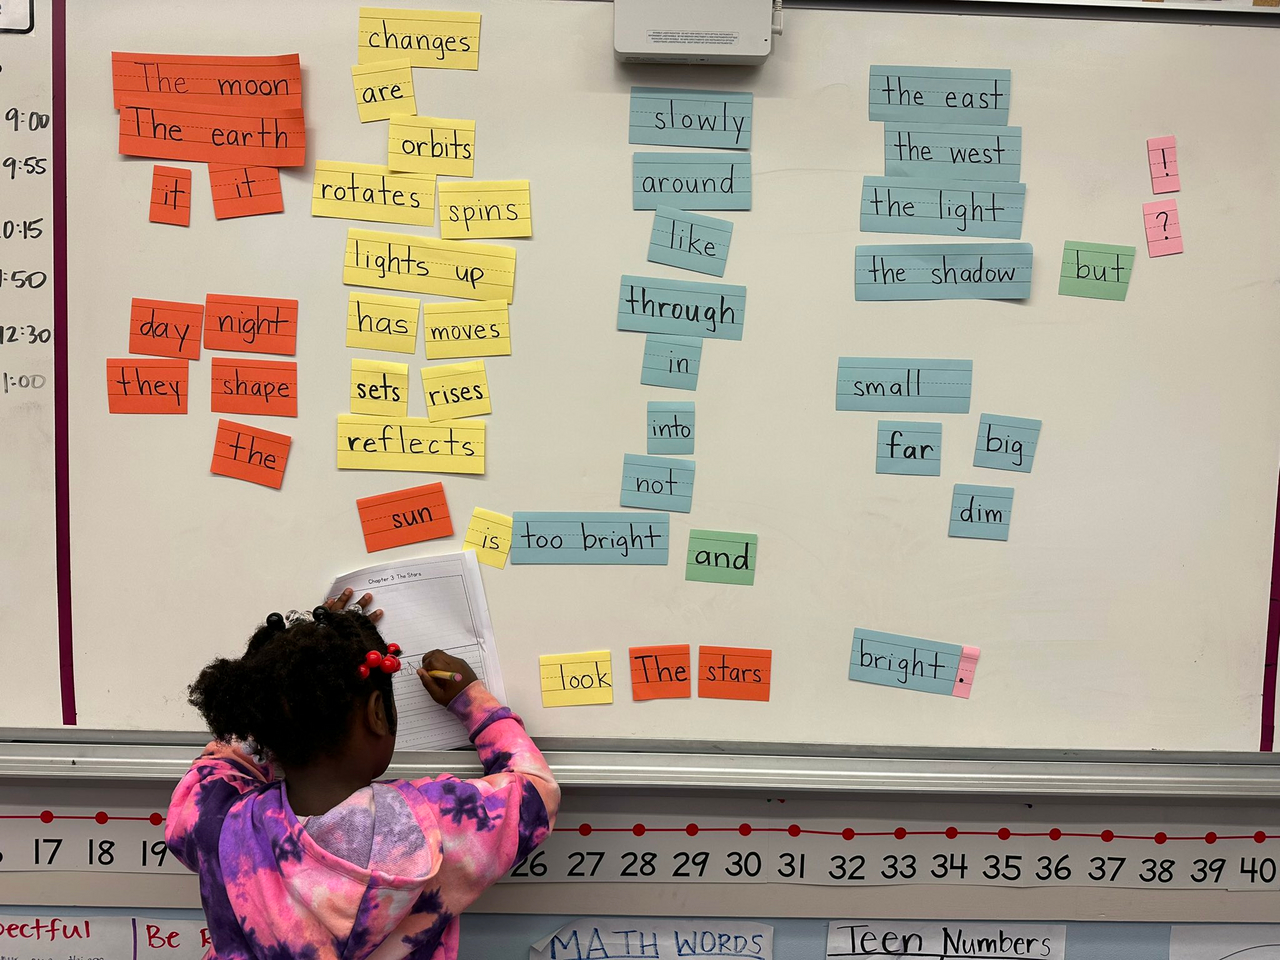 9:00
9:55
0:15
:50
12:30
1:00
The moon
The earth
it
it
day
night
they
shape
the
changes
are
orbits
rotates
spins
lights up
has
moves
sets
rises
reflects
sun
is
too bright
and
slowly
around
like
through
in
into
not
the east
the west
the light
the shadow
but
!
?
small
far
big
dim
Chapter 3 The Stars
look
The
stars
bright
.
17 18 19 26 27 28 29 30 31 32 33 34 35 36 37 38 39 40
pectful
Be
MATH WORDS
Teen Numbers